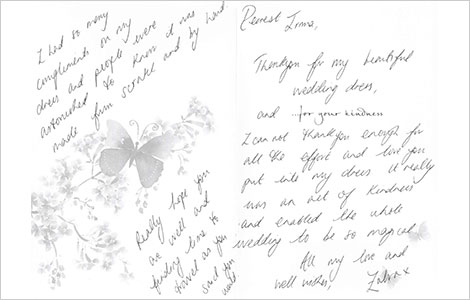 I had so many
complements on my
dress and people were
astonished to know it was
made from scratch and by hand.
Really hope you
are well and
finding time to
travel as you
said you
would
Dearest Irma,
Thankyou for my beautiful
wedding dress,
and ...for your kindness
I can not thankyou enough for
all the effort and love you
put into my dress it really
was an act of kindness
and enabled the whole
wedding to be so magical
All my love and
well wishes!